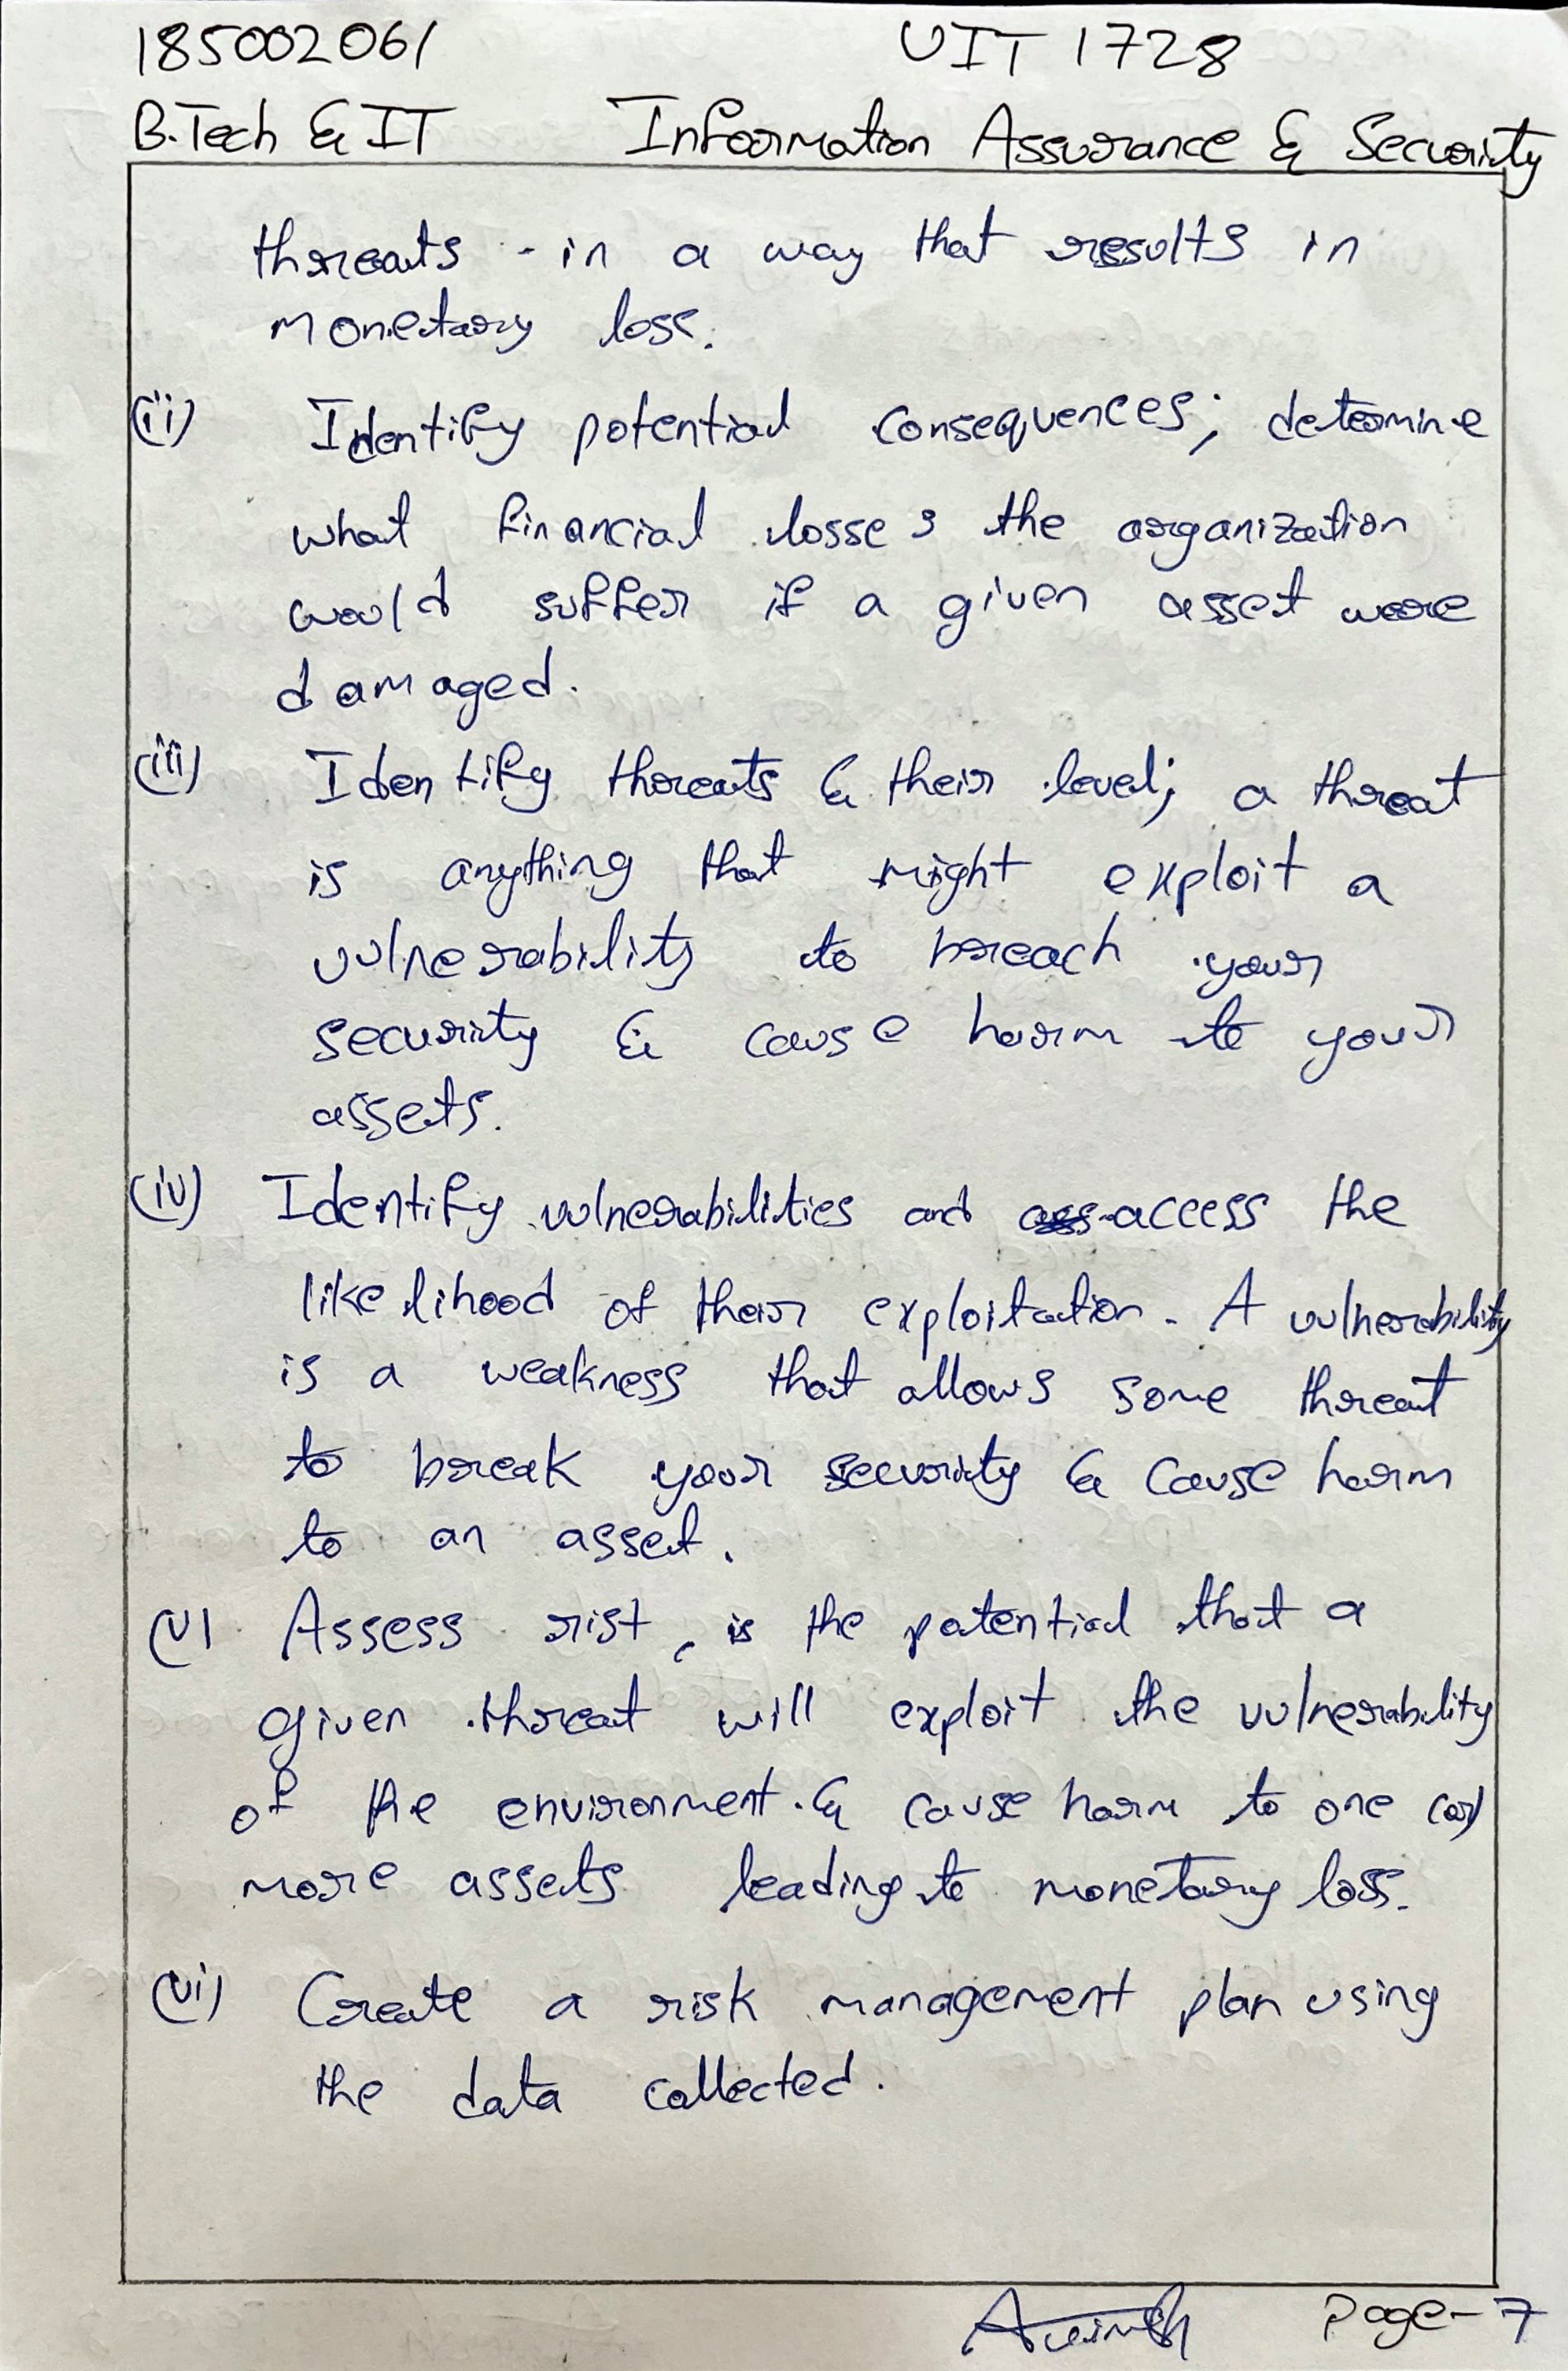 185002061 UIT 1728
B.Tech & IT Information Assurance & Security
threats - in a way that results in
monetary loss.
(ii) Identify potential consequences; determine
what financial losses the organization
would suffer if a given asset were
damaged.
(iii) Identify threats & their level; a threat
is anything that might exploit a
vulnerability to breach your
security & cause harm to your
assets.
(iv) Identify vulnerabilities and access the
likelihood of their exploitation. A vulnerability
is a weakness that allows some threat
to break your security & cause harm
to an asset.
(v) Assess rist, is the potential that a
given threat will exploit the vulnerability
of the environment & cause harm to one (or)
more assets leading to monetary loss.
(vi) Create a risk management plan using
the data collected.
Page-7